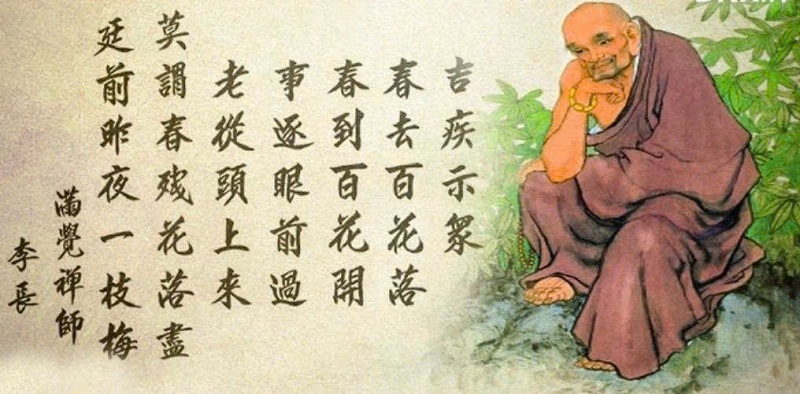 吉疾示眾
春去百花落
春到百花開
事逐眼前過
老從頭上來
莫謂春殘花落盡
廷前昨夜一枝梅
滿覺禅師
李長